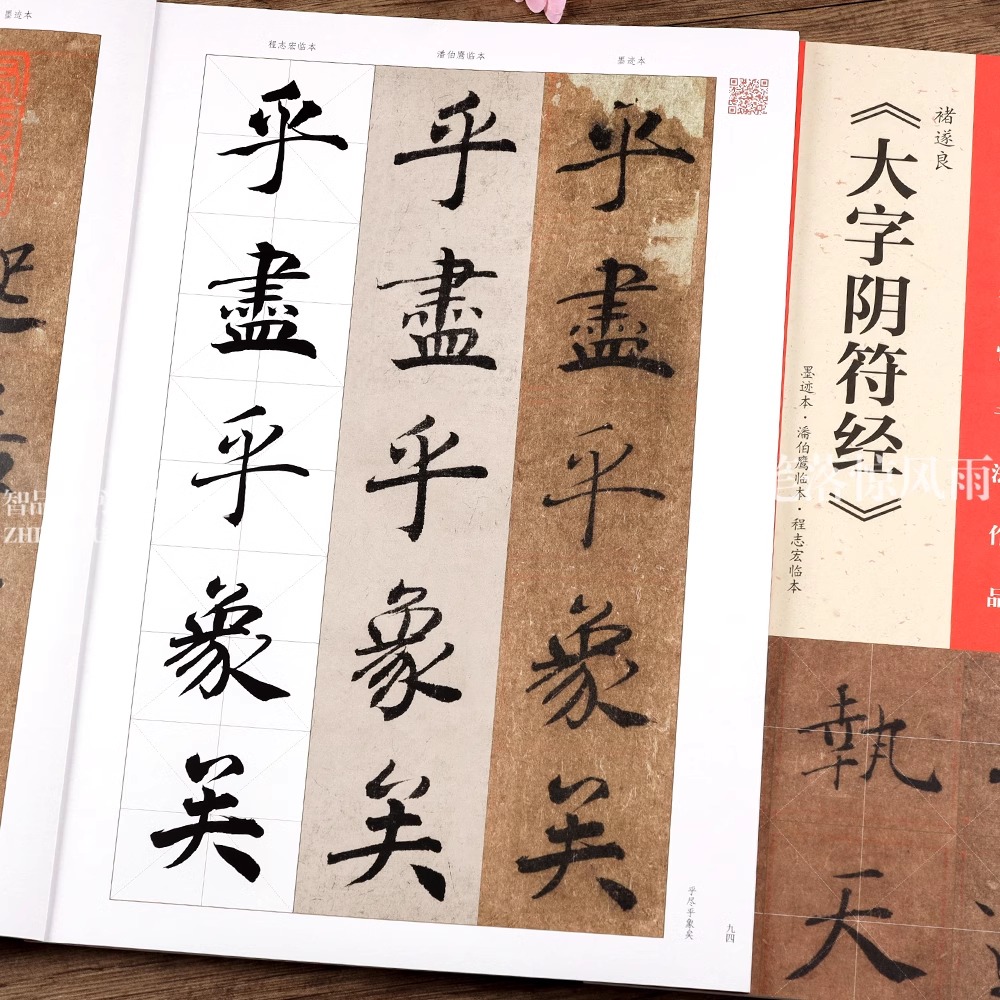 墨迹本
程志宏临本
潘伯鹰临本
墨迹本
乎盡乎象矣
乎盡乎象矣
乎盡乎象矣
乎尽乎象矣
九四
褚遂良
《大字阴符经》
墨迹本·潘伯鹰临本·程志宏临本
執天
作品
智品
ZHI
落惊风雨